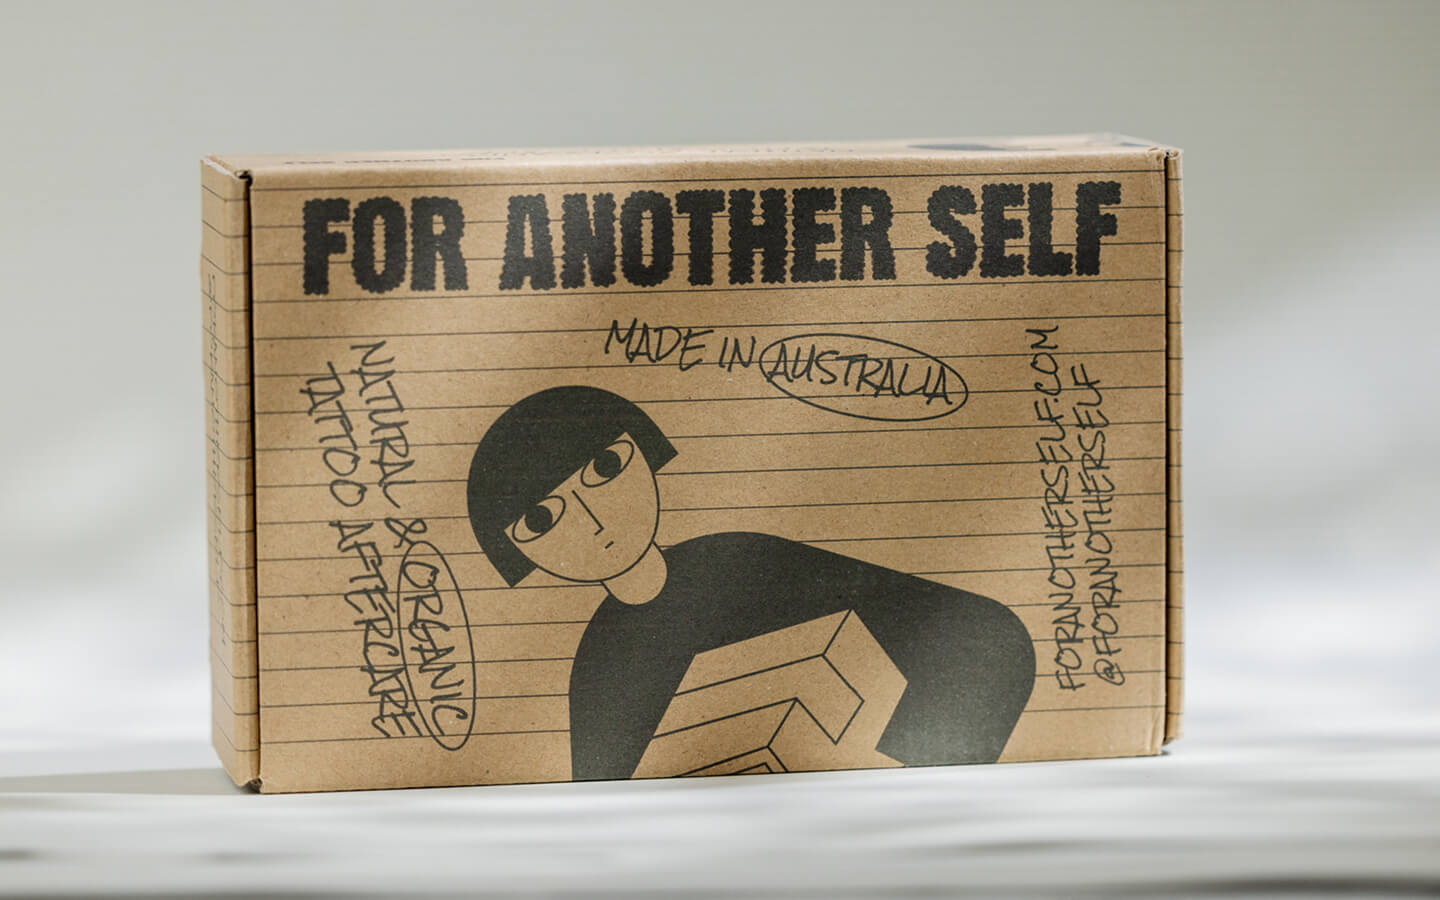 FOR ANOTHER SELF
MADE IN AUSTRALIA
NATURAL & ORGANIC
TATTOO AFTERCARE
FORANOTHERSELF.COM
@FORANOTHERSELF